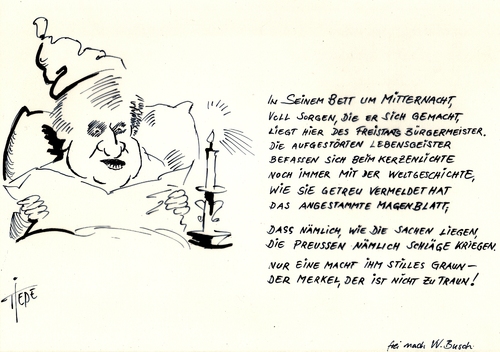 IN SEINEM BETT UM MITTERNACHT,
VOLL SORGEN, DIE ER SICH GEMACHT,
LIEGT HIER DES FREISTAATS BÜRGERMEISTER.
DIE AUFGESTÖRTEN LEBENSGEISTER
BEFASSEN SICH BEIM KERZENLICHTE
NOCH IMMER MIT DER WELTGESCHICHTE,
WIE SIE GETREU VERMELDET HAT
DAS ANGESTAMMTE MAGENBLATT,
DASS NÄMLICH, WIE DIE SACHEN LIEGEN,
DIE PREUSSEN NÄMLICH SCHLÄGE KRIEGEN.
NUR EINE MACHT IHM STILLES GRAUN –
DER MERKEL, DER IST NICHT ZU TRAUN!
TIEDE
frei nach W. Busch